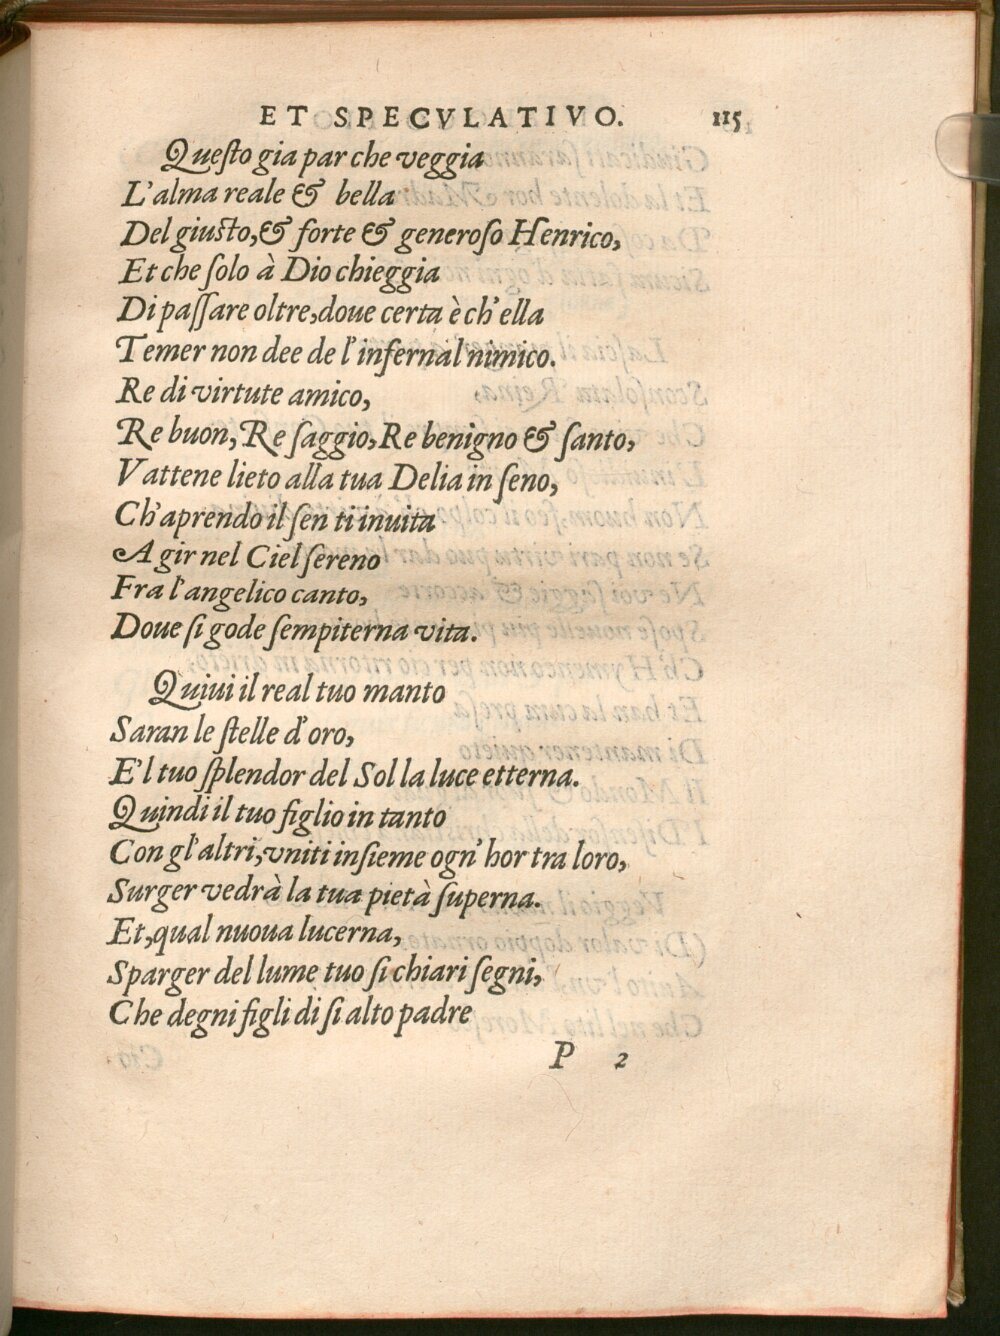 ET SPECVLATIVO. 115
Questo gia par che veggia
L'alma reale & bella
Del giusto,& forte & generoso Henrico,
Et che solo à Dio chieggia
Di passare oltre,doue certa è ch'ella
Temer non dee de l'infernal nimico.
Re di virtute amico,
Re buon,Re saggio,Re benigno & santo,
Vattene lieto alla tua Delia in seno,
Ch'aprendo il sen ti inuita
A gir nel Ciel sereno
Fra l'angelico canto,
Doue si gode sempiterna vita.
Quiui il real tuo manto
Saran le stelle d'oro,
E'l tuo splendor del Sol la luce etterna.
Quindi il tuo figlio in tanto
Con gl'altri,vniti insieme ogn'hor tra loro,
Surger vedrà la tua pietà superna.
Et,qual nuoua lucerna,
Sparger del lume tuo si chiari segni,
Che degni figli di si alto padre
P 2